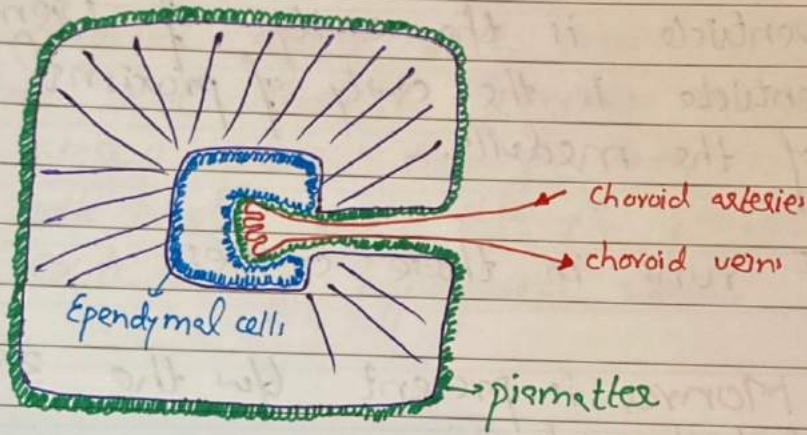 choroid arteries
choroid veins
Ependymal cells
piamatter